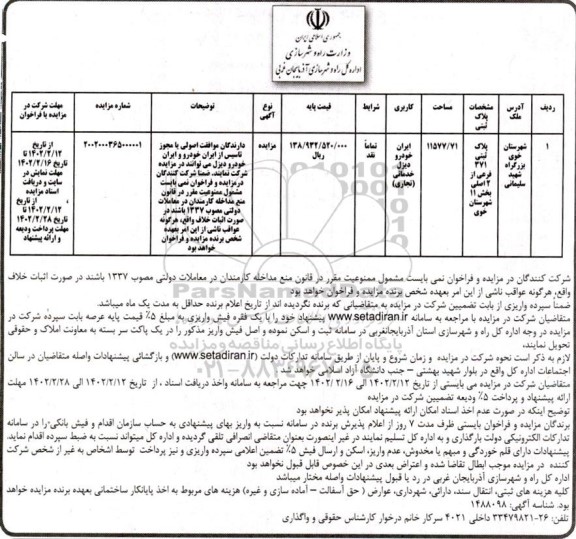 جمهوری اسلامی ایران
وزارت راه و شهرسازی
اداره کل راه و شهرسازی آذربایجان غربی
ردیف
آدرس ملک
مشخصات پلاک ثبتی
مساحت
کاربری
شرایط
قیمت پایه
نوع آگهی
توضیحات
شماره مزایده
مهلت شرکت در مزایده یا فراخوان
۱
شهرستان
خوی
بزرگراه
شهید
سلیمانی
پلاک
ثبتی
۳۷۱
فرعی از
۲ اصلی
بخش ۱۱
شهرستان
خوی
۱۱۵۷۷/۷۱
ایران
خودرو
دیزل
خدماتی
(تجاری)
تماماً
نقد
۱۳۸/۹۳۲/۵۲۰/۰۰۰
ریال
مزایده
دارندگان موافقت اصولی یا مجوز
تاسیس از ایران خودرو و ایران
خودرو دیزل می توانند در مزایده
شرکت نمایند. ضمنا شرکت کنندگان
در مزایده و فراخوان نمی بایست
مشمول ممنوعیت مقرر در قانون
منع مداخله کارمندان در معاملات
دولتی مصوب ۱۳۳۷ باشند در
صورت اثبات خلاف واقع، هرگونه
عواقب ناشی از این امر بعهده
شخص برنده مزایده و فراخوان
خواهد بود
۲۰۰۲۰۰۰۳۶۵۰۰۰۰۰۱
از تاریخ
۱۴۰۲/۲/۱۲ تا
تاریخ ۱۴۰۲/۲/۱۶
مهلت نمایش در
سایت و دریافت
اسناد مزایده
از تاریخ
۱۴۰۲/۲/۱۲ تا
تاریخ ۱۴۰۲/۲/۲۸
مهلت پرداخت ودیعه
و ارائه پیشنهاد
شرکت کنندگان در مزایده و فراخوان نمی بایست مشمول ممنوعیت مقرر در قانون منع مداخله کارمندان در معاملات دولتی مصوب ۱۳۳۷ باشند در صورت اثبات خلاف
واقع، هرگونه عواقب ناشی از این امر بعهده شخص برنده مزایده و فراخوان خواهد بود
ضمنا سپرده واریزی از بابت تضمین شرکت در مزایده به متقاضیانی که برنده نگردیده اند از تاریخ اعلام برنده حداقل به مدت یک ماه میباشد
متقاضیان شرکت در مزایده با مراجعه به سامانه www.setadiran.ir پیشنهاد خود را با یک فقره فیش واریزی به مبلغ ۵٪ قیمت پایه عرصه بابت سپرده شرکت در
مزایده در وجه اداره کل راه و شهرسازی استان آذربایجانغربی در سامانه ثبت و اسکن نموده و اصل فیش واریز مذکور را در یک پاکت سر بسته به معاونت املاک و حقوقی
تحویل نمایند.
لازم به ذکر است نحوه شرکت در مزایده و زمان شروع و پایان از طریق سامانه تدارکات دولت (www.setadiran.ir) و بازگشائی پیشنهادات واصله متقاضیان در سالن
اجتماعات اداره کل واقع در بلوار شهید بهشتی – جنب دانشگاه آزاد اسلامی خواهد شد
متقاضیان شرکت در مزایده می بایستی از تاریخ ۱۴۰۲/۲/۱۲ الی ۱۴۰۲/۲/۱۶ جهت مراجعه به سامانه واخذ دریافت اسناد ، از تاریخ ۱۴۰۲/۲/۱۲ الی ۱۴۰۲/۲/۲۸ مهلت
ارائه پیشنهاد و پرداخت ۵٪ ودیعه تضمیین شرکت در مزایده
توضیح اینکه در صورت عدم اخذ اسناد امکان ارائه پیشنهاد امکان پذیر نخواهد بود
برندگان مزایده و فراخوان بایستی ظرف مدت ۷ روز از اعلام پذیرش برنده در سامانه نسبت به واریز بهای پیشنهادی به حساب سازمان اقدام و فیش بانکی را در سامانه
تدارکات الکترونیکی دولت بارگذاری و به اداره کل تسلیم نمایند در غیر اینصورت بعنوان متقاضی انصرافی تلقی گردیده و اداره کل میتواند نسبت به ضبط سپرده اقدام نماید.
پیشنهادات دارای قلم خوردگی و مبهم یا مخدوش، عدم واریز، اسکن و ارسال فیش ۵٪ تضمین اعلامی سپرده واریزی و نیز پرداخت توسط اشخاص به غیر از شخص شرکت
کننده در مزایده موجب ابطال تقاضا شده و اعتراض بعدی در این خصوص قابل قبول نخواهد بود
اداره کل راه و شهرسازی آذربایجان غربی در رد یا قبول پیشنهادات واصله مختار میباشد
کلیه هزینه های ثبتی، انتقال سند، دارائی، شهرداری، عوارض ( حق آسفالت – آماده سازی و غیره) هزینه های مربوط به اخذ پایانکار ساختمانی بعهده برنده مزایده خواهد
بود. شناسه آگهی: ۱۴۸۸۰۹۸
تلفن: ۲۶-۳۳۴۷۹۸۲۱ داخلی ۴۰۲۱ سرکار خانم درخوار کارشناس حقوقی و واگذاری